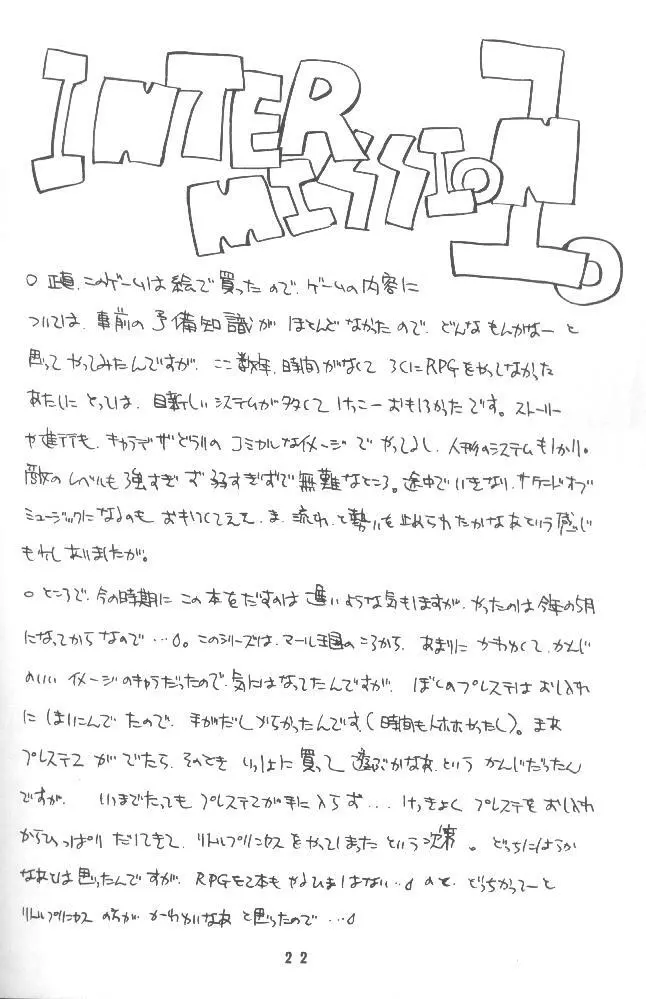 INTER
MISSION
○ 正直、このゲームは絵で買ったので、ゲームの内容に
ついては、事前の予備知識がほとんどなかったので、どんなもんかなーと
思ってやってみたんですが、ここ数年、時間がなくてろくにRPGをやってなかった
あたしにとっては、目新しいシステムが多くてけっこーおもしろかったです。ストーリー
や進行も、キャラデザどうりのコミカルなイメージで やってよし、人形のシステムも
敵のレベルも強すぎず弱すぎずで無難なところ。途中でいきなり、サウンドオブ
ミュージックになるのも おもしろくてええ、ま、流れと勢いを止められたかなあという感じ
も少しありましたが。
○ ところで、今の時期にこの本をだすのは遅いような気もしますが、やったのは今年の5月
になってからなので…。このシリーズは、マール王国のころから、あまりにかわいくて、かんじ
のいいイメージのキャラだったので、気にはなってたんですが、ぼくのプレステはおしいれ
にはいってたので、手がだしづらかったんです(時間もなかったし)。まあ
プレステ2がでたら、そのときいっしょに買って遊ぶかなあ、というかんじだったん
ですが、いつまでたってもプレステ2が手に入らず…けっきょくプレステをおしいれ
からひっぱりだしてきて、リトルプリンセスをやってしまったという次第。どっちにしようか
なあとは思ったんですが、RPGを2本もやるひまはない…ので、どっちかってーと
リトルプリンセスの方がかーわいいなあと思ったので…
22